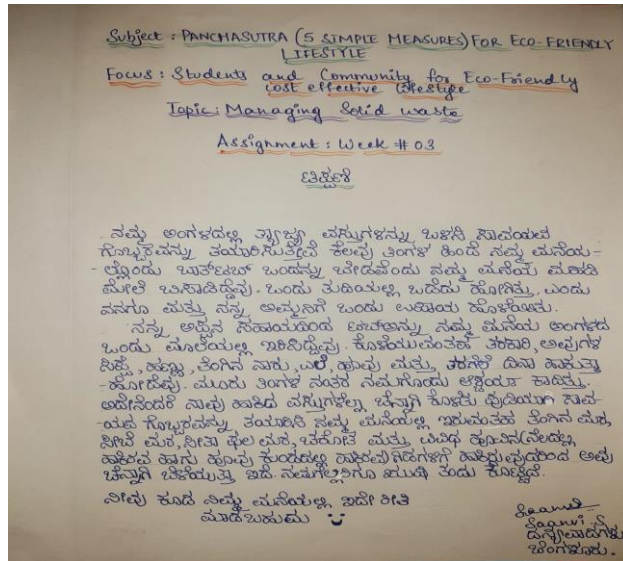 Subject : PANCHASUTRA (5 SIMPLE MEASURES) FOR ECO-FRIENDLY
LIFESTYLE
Focus : Students and Community for Eco-Friendly
cost effective lifestyle
Topic : Managing Solid waste
Assignment : Week # 03
ಟಿಪ್ಪಣಿ
ನಮ್ಮ ಅಂಗಳದಲ್ಲಿ ತ್ಯಾಜ್ಯ ವಸ್ತುಗಳನ್ನು ಬಳಸಿ ಸಾವಯವ
ಗೊಬ್ಬರವನ್ನು ತಯಾರಿಸುತ್ತೇವೆ ಕೆಲವು ತಿಂಗಳ ಹಿಂದೆ ನಮ್ಮ ಮನೆಯ-
-ಲ್ಲೊಂದು ಬಾತ್‌ಟಬ್ ಒಂದನ್ನು ಬೇಡವೆಂದು ನಮ್ಮ ಮನೆಯ ಮಹಡಿ
ಮೇಲೆ ಬಿಸಾಡಿದ್ದೆವು. ಒಂದು ತುದಿಯಲ್ಲಿ ಒಡೆದು ಹೋಗಿತ್ತು, ಎಂದು
ನನಗೂ ಮತ್ತು ನನ್ನ ಅಮ್ಮನಿಗೆ ಒಂದು ಉಪಾಯ ಹೊಳೆಯಿತು.
ನನ್ನ ಅಪ್ಪನ ಸಹಾಯದಿಂದ ಟಬ್‌ಅನ್ನು ನಮ್ಮ ಮನೆಯ ಅಂಗಳದ
ಒಂದು ಮೂಲೆಯಲ್ಲಿ ಇರಿಸಿದ್ದೆವು. ಕೊಳೆಯುವಂತಹ ತರಕಾರಿ, ಅವುಗಳ
ಸಿಪ್ಪೆ, ಹಣ್ಣು, ತೆಂಗಿನ ನಾರು, ಎಲೆ, ಹೂವು ಮತ್ತು, ತರಗೆಲೆ ದಿನಾ ಹಾಕುತ್ತಾ
-ಹೋದೆವು. ಮೂರು ತಿಂಗಳ ನಂತರ ನಮಗೊಂದು ಆಶ್ಚರ್ಯ ಕಾದಿತ್ತು.
ಅದೇನೆಂದರೆ ನಾವು ಹಾಕಿದ ವಸ್ತುಗಳೆಲ್ಲಾ ಚೆನ್ನಾಗಿ ಕೊಳೆತು ಪುಡಿಯಾಗಿ ಸಾವ-
-ಯವ ಗೊಬ್ಬರವನ್ನು ತಯಾರಿಸಿ ನಮ್ಮ ಮನೆಯಲ್ಲಿ ಇರುವಂತಹ ತೆಂಗಿನ ಮರ,
ಸೀಬೆ ಮರ, ಸೀತಾ ಫಲ ಮರ, ಚಕೋತ ಮತ್ತು ವಿವಿಧ ಹೂವಿನ(ನೆಲದಲ್ಲಿ
ಹಾಕಿರುವ ಹಾಗು ಹೂವು ಕುಂಡದಲ್ಲಿ ಹಾಕಿರುವ)ಗಿಡಗಳಿಗೆ ಹಾಕಿದ್ದುದರಿಂದ ಅವು
ಚೆನ್ನಾಗಿ ಬೆಳೆಯುತ್ತಾ ಇದೆ. ನಮಗೆಲ್ಲರಿಗೂ ಖುಷಿ ತಂದು ಕೊಟ್ಟಿದೆ.
ನೀವು ಕೂಡ ನಿಮ್ಮ ಮನೆಯಲ್ಲಿ ಇದೇ ರೀತಿ
ಮಾಡಬಹುದು
Saanvi
ಧನ್ಯವಾದಗಳು
ಬೆಂಗಳೂರು.